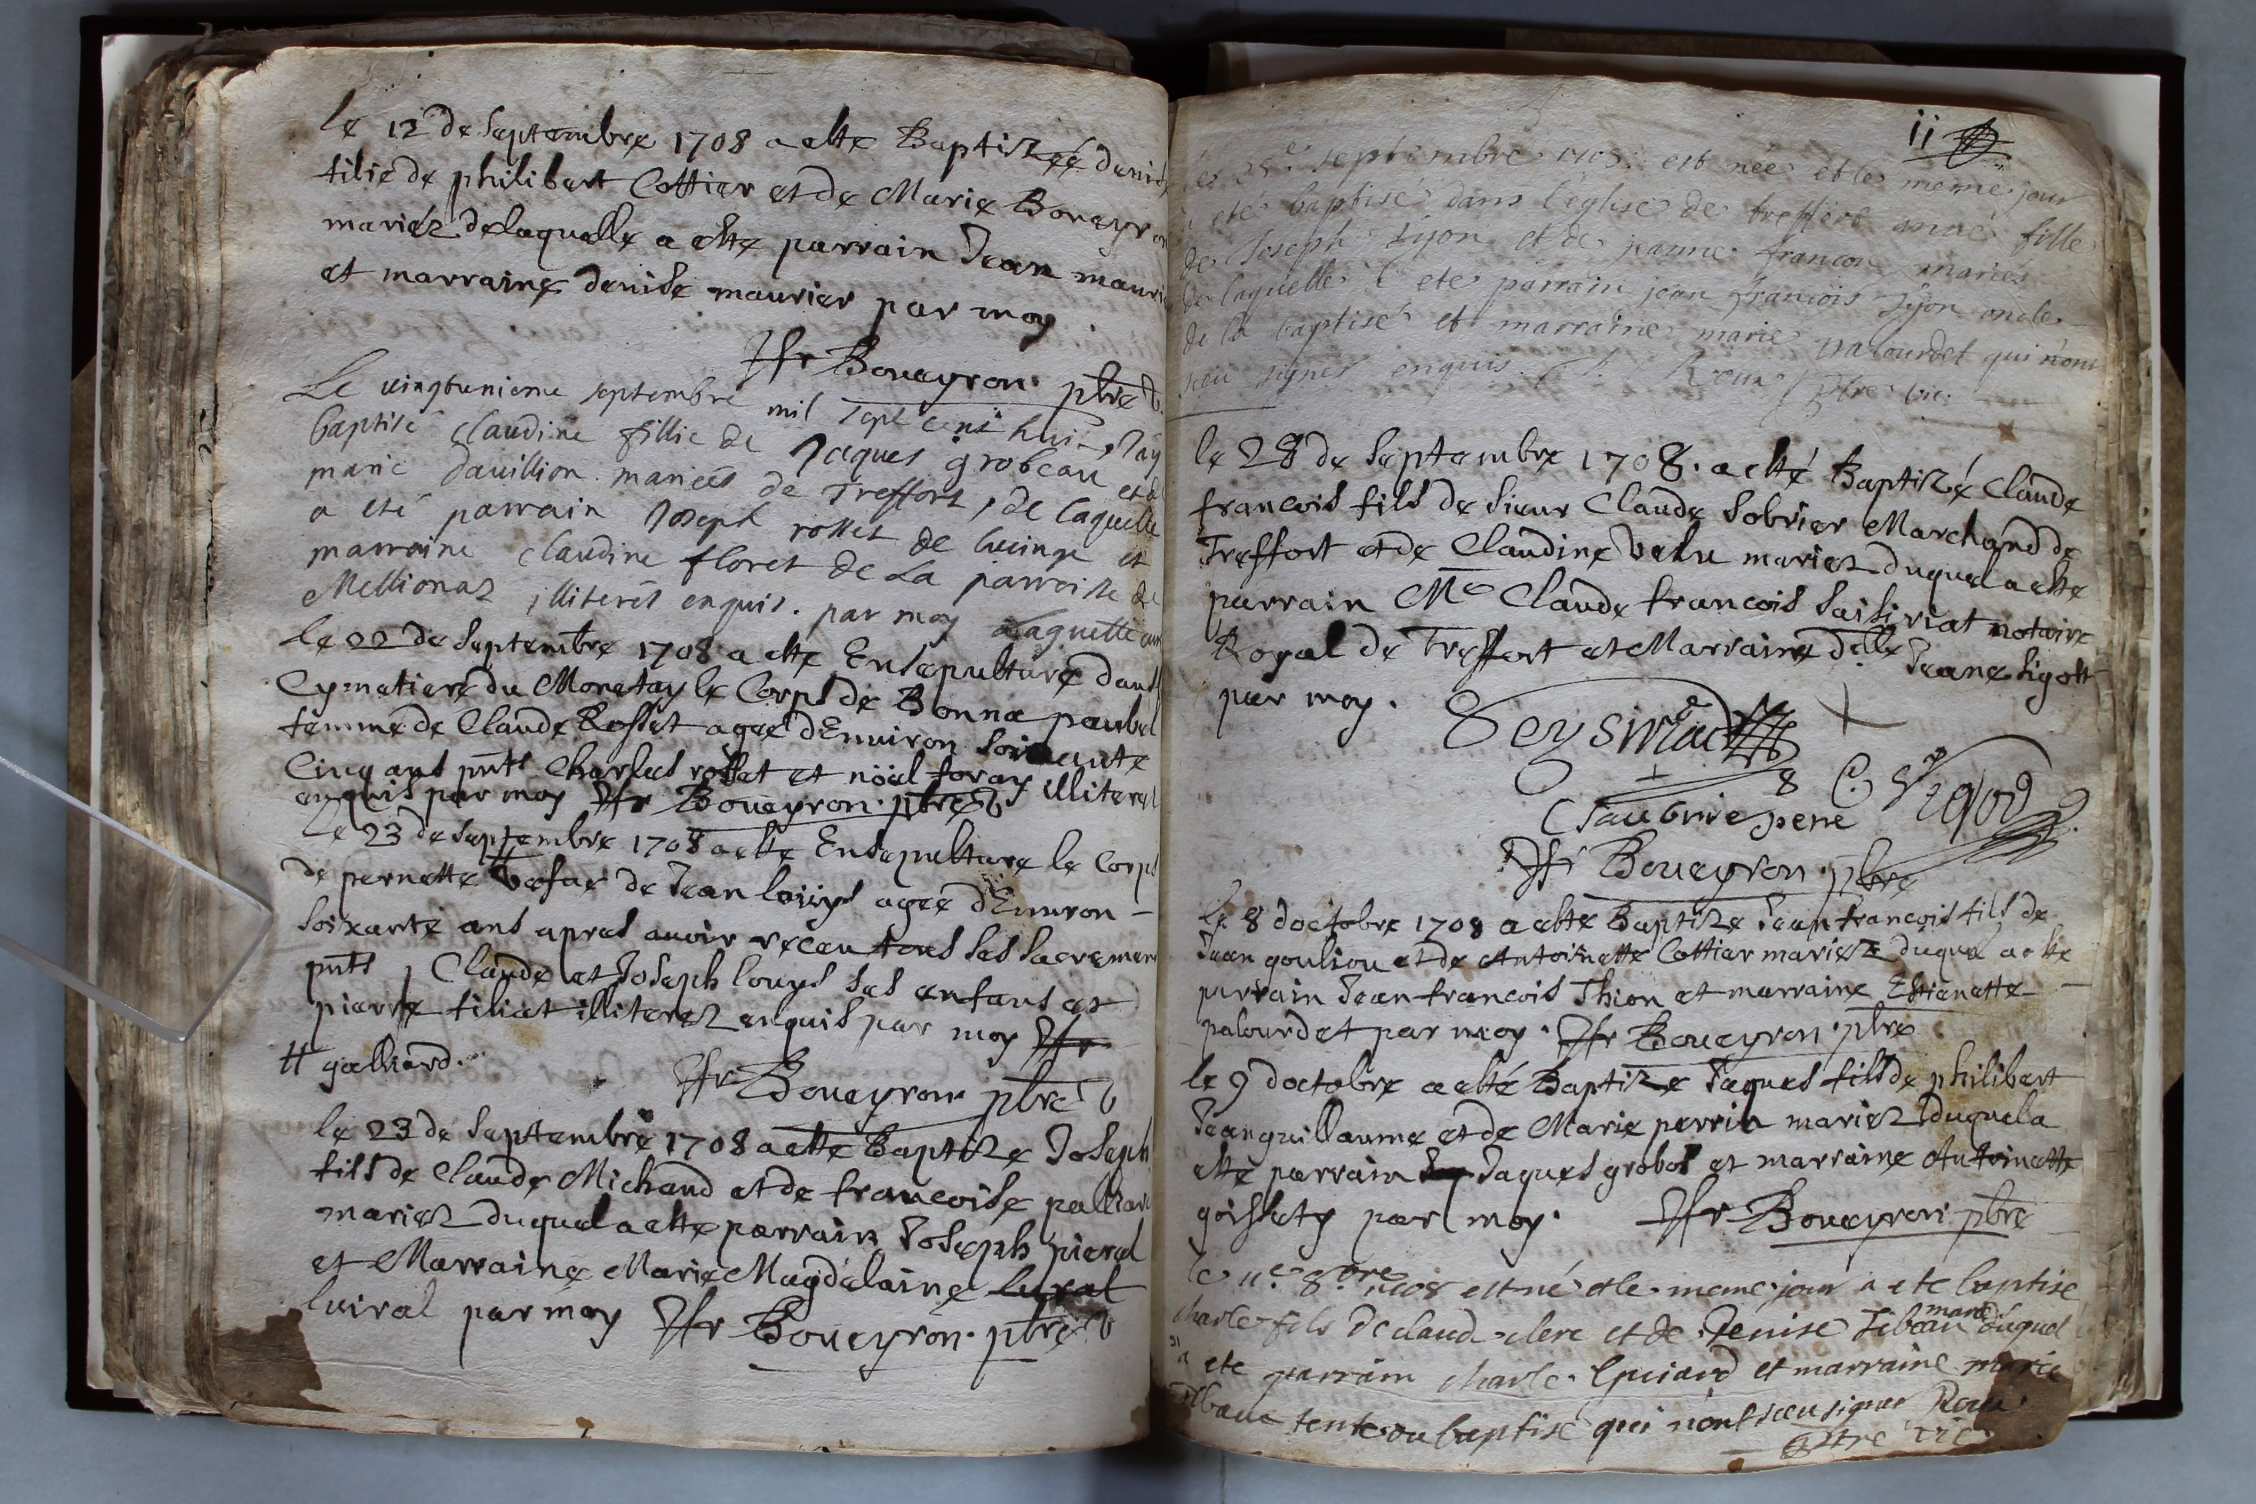 le 12 de Septembre 1708 a este Baptizée denis
fille de philibert Cottier et de Marie Boueyron
mariéz delaquelle a este parrain Jean maurie
et marraine denise maurier par moy
Jfr Boueyron ptre
Le uingtunieme septembre mil sept cent huit, J'ay
baptisé Claudine fillie de Jaques grobeau et de
marie dauillion mariées de Treffort, de laquelle
a eté parrain Joseph rosset de lucinge et
marraine claudine floret de La parroisse de
Mellionas illiterés enquis. par moy
le 22 de Septembre 1708 a este Ensepulturé dans
Cymetiere du Monetay le Corps de Bonne
femme de Claude Rosset agee d'Enuiron Soixante
Cinq ans pnts Charles rosset et nöel foray illiteres
enquis par moy Jfr Boueyron ptre
Le 23 de Septembre 1708 a este Ensepulture le Corps
de pernette # Vefue de Jean loüys agee d'Enuiron
Soixante ans apres auoir receu tous ses Sacremen
pnts Claude et Joseph louys ses enfans et
pierre filiat illiterez enquis par moy Jfr
# galliard.
Jfr Boueyron ptre
le 23 de Septembre 1708 a este Baptize Joseph
fils de Claude Michaud et de francoise palliard
mariez duquel a este parrain Joseph pieral
et Marraine Marie Magdelaine lural
luiral par moy Jfr Boueyron ptre
ii
le septembre 1708 est née et le meme jour
a eté baptisé dans l'eglise de treffort anne fille
de Joseph Lyon et de janne francon mariés
de laquelle a eté parrain jean francois Lyon oncle
de la baptisé et marraine marie palourdet qui n'ont
sceu signer enquis ptre vic
le 28 de Septembre 1708. a esté Baptizé Claude
francois fils de sieur Claude Sobrier Marchand de
Treffort et de Claudine Velu mariez duquel a este
parrain Me Claude francois Saisiriat notaire
Royal de Treffort et Marraine Dlle Jeane Sigott
par moy.
Seysiriat
C Sigod
C Saubrie pere
Jfr Boueyron ptre
le 8 doctobre 1708 a este Baptize Jean francois fils de
Jean gouliou et de Antoinette Cottier mariez duquel a este
parrain Jean francois Thion et marraine Estienette
palourdet par moy. Jfr Boueyron ptre
le 9 doctobre a esté Baptize Jaques fils de philibert
Jeanguillaume et de Marie perrin mariez duquel a
este parrain Jaques grobos et marraine Antoinette
goissety par moy. Jfr Boueyron ptre
le 11e 8bre 1708 est né et le meme jour a ete baptise
charle fils de claud clerc et de Denise Teban mariés duquel
a ete parrain charle et marraine marie
tente du baptisé qui n'ont sceu signer
ptre vic